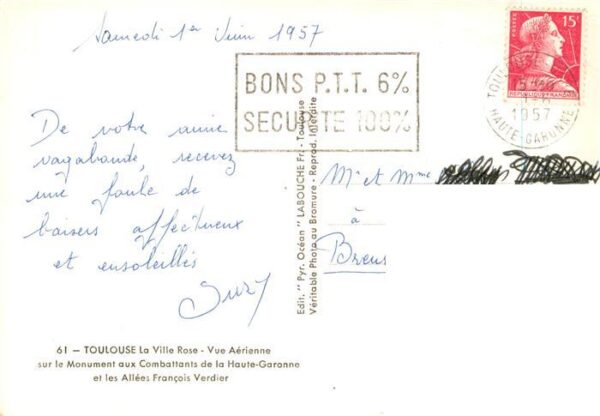 Samedi 1er Juin 1957
BONS P.T.T. 6%
SECURITE 100%
POSTES
15F
REPUBLIQUE FRANÇAISE
TOULOUSE
1957
HAUTE-GARONNE
De votre amie
vagabonde, recevez
une foule de
baisers affectueux
et ensoleillés
Suzy
Edit. "Pyr. Océan" LABOUCHE Fr. - Toulouse
Véritable Photo au Bromure - Reprod. Interdite
Mr et Mme
à
Brens
61 — TOULOUSE La Ville Rose - Vue Aérienne
sur le Monument aux Combattants de la Haute-Garonne
et les Allées François Verdier